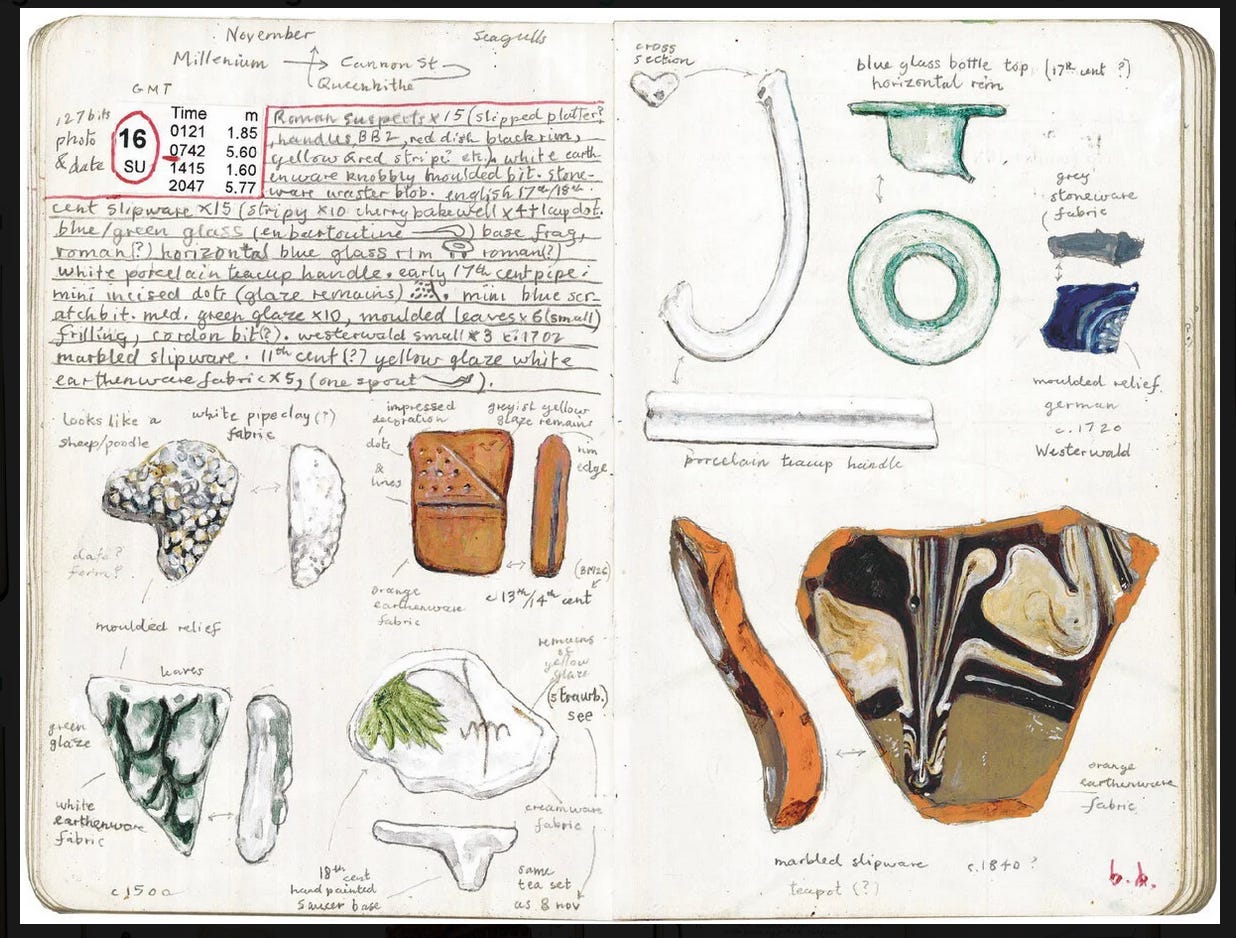 November
Seagulls
Millenium → Cannon St
Queenhithe
GMT
127 bits
photo
& date
16
SU
Time m
0121 1.85
0742 5.60
1415 1.60
2047 5.77
Roman suspects x 15 (slipped platter?
handles, BB2, red dish black rim,
yellow & red stripe etc), white earth-
enware knobbly moulded bit. stone-
ware waster blob. english 17th/18th
cent slipware x15 (stripy x10 cherry bakewell x4 + 1 cup dot.
blue/green glass (en bartoutine) base frag,
roman(?) horizontal blue glass rim roman(?)
white porcelain teacup handle. early 17th cent pipe:
mini incised dots (glaze remains). mini blue scr-
atch bit. med. green glaze x10, moulded leaves x 6 (small)
frilling, cordon bit(?). westerwald small x 3 c.1702
marbled slipware. 11th cent (?) yellow glaze white
earthenware fabric x 5, (one spout).
looks like a
sheep/poodle
white pipeclay (?)
fabric
date?
form?
moulded relief
impressed
decoration
dots
&
lines
greyish yellow
glaze remains
rim
edge
orange
earthenware
fabric
c 13th/14th cent
leaves
green
glaze
white
earthenware
fabric
c 1500
remains
of
yellow
glaze
(strawb.)
see
creamware
fabric
18th
cent
hand painted
saucer base
same
tea set
as 8 nov
cross
section
blue glass bottle top (17th cent ?)
horizontal rim
grey
stoneware
fabric
moulded relief
german
c. 1720
Westerwald
porcelain teacup handle
orange
earthenware
fabric
marbled slipware c. 1840?
teapot (?)
b.b.